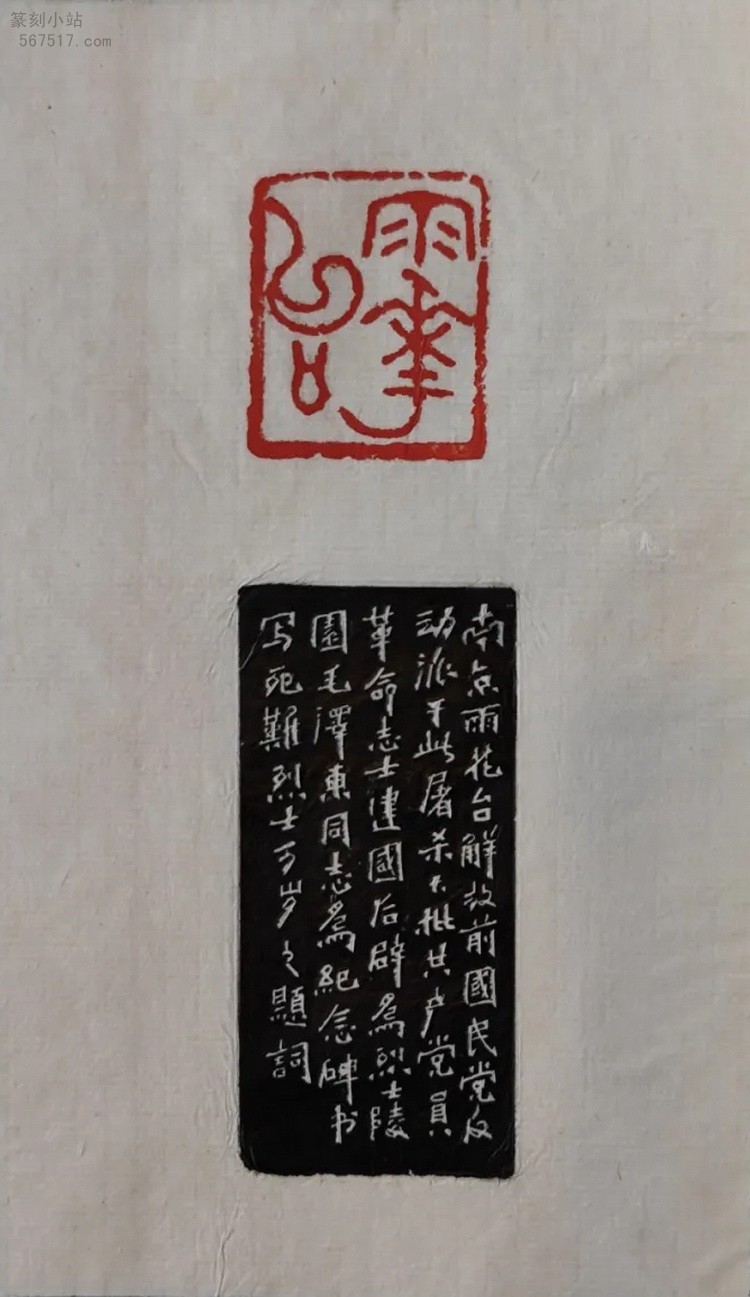 篆刻小站
567517.com
雨花
台
南京雨花台解放前國民党反
动派于此屠杀大批共产党員
革命志士建國后辟為烈士陵
園毛澤東同志為紀念碑书
写死難烈士万岁之題詞